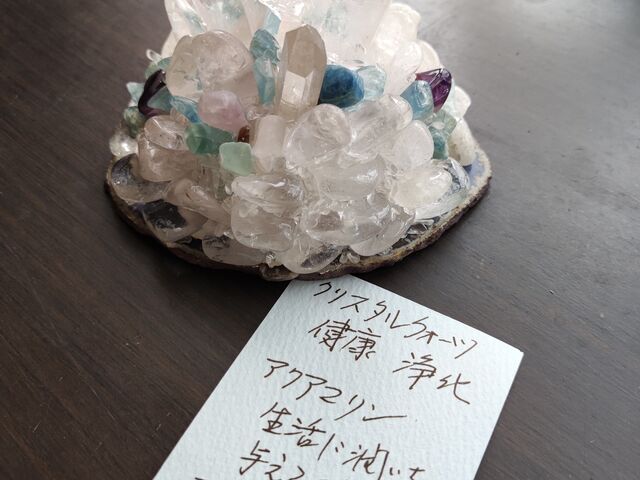 クリスタルクォーツ
健康 浄化
アクアマリン
生活に潤いを
与える